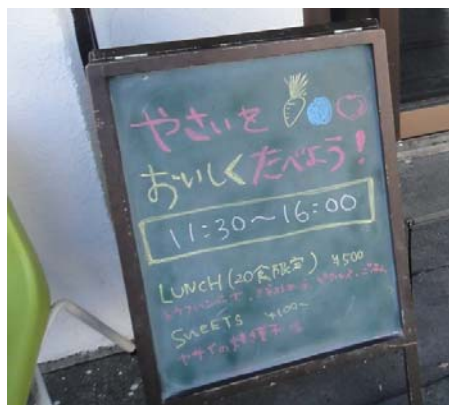 やさいを
おいしくたべよう!
11:30~16:00
LUNCH(20食限定) ¥500
SWEETS ¥100~
ヤサイの焼き菓子